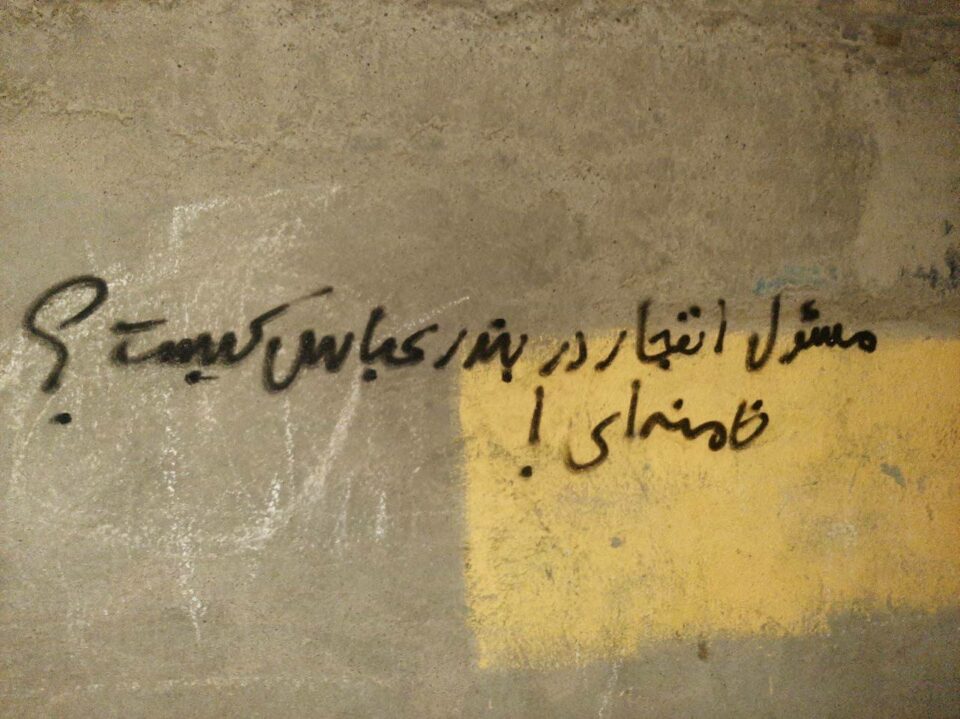 مسئول انفجار در بندر عباس کیست؟
خامنه‌ای!